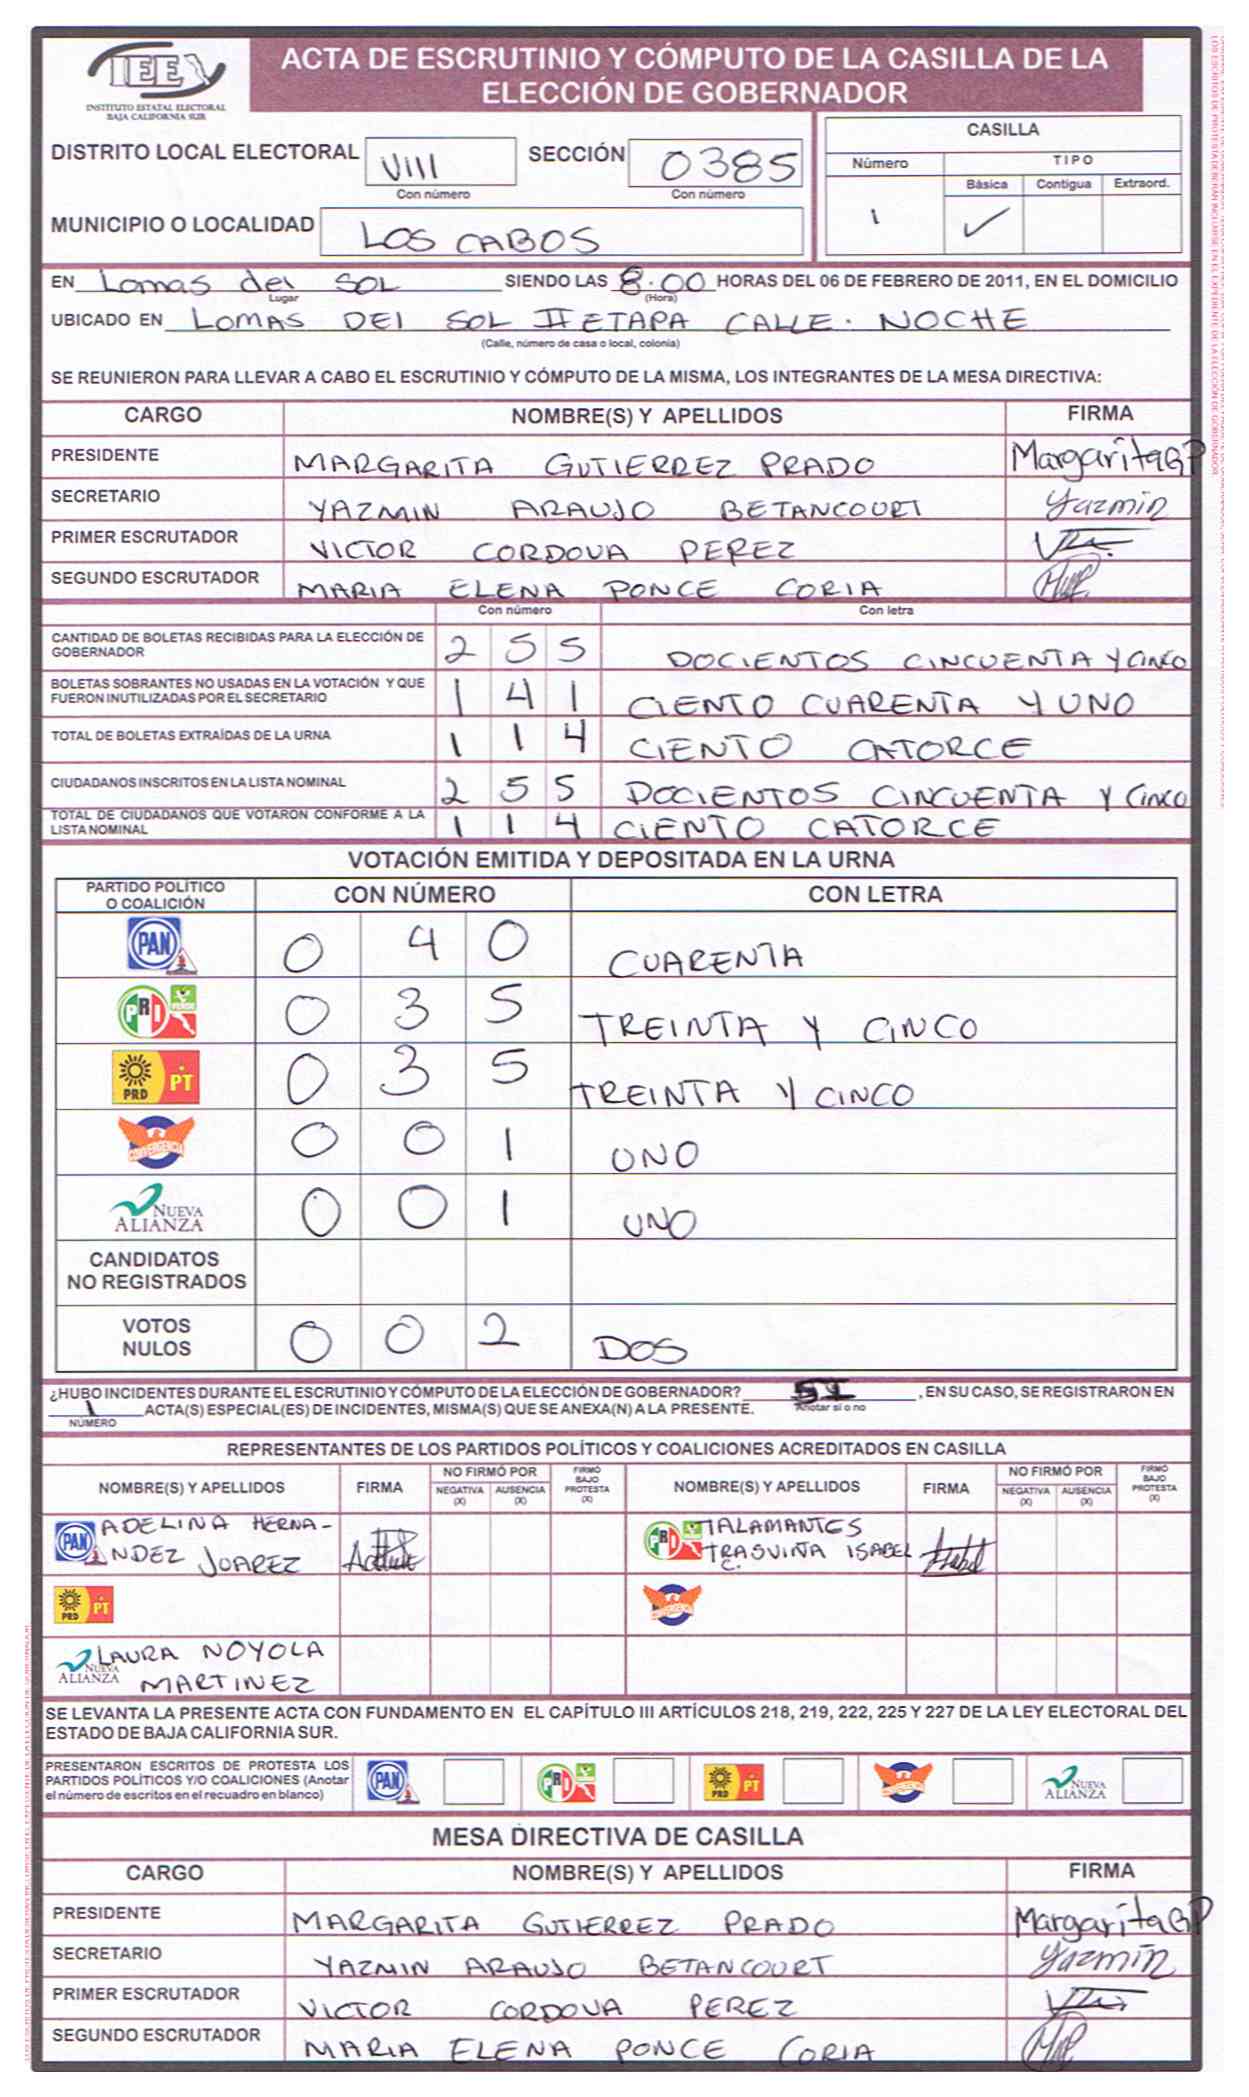 IEE
INSTITUTO ESTATAL ELECTORAL
BAJA CALIFORNIA SUR
ACTA DE ESCRUTINIO Y CÓMPUTO DE LA CASILLA DE LA
ELECCIÓN DE GOBERNADOR
DISTRITO LOCAL ELECTORAL VIII SECCIÓN 0385
Con número Con número
MUNICIPIO O LOCALIDAD LOS CABOS
CASILLA
Número TIPO
Básica Contigua Extraord.
1 ✓
EN Lomas del SOL SIENDO LAS 8:00 HORAS DEL 06 DE FEBRERO DE 2011, EN EL DOMICILIO
Lugar (Hora)
UBICADO EN LOMAS DEl SOL II ETAPA CALLE. NOCHE
(Calle, número de casa o local, colonia)
SE REUNIERON PARA LLEVAR A CABO EL ESCRUTINIO Y CÓMPUTO DE LA MISMA, LOS INTEGRANTES DE LA MESA DIRECTIVA:
CARGO NOMBRE(S) Y APELLIDOS FIRMA
PRESIDENTE MARGARITA GUTIERREZ PRADO MargaritaGP
SECRETARIO YAZMIN ARAUJO BETANCOURT Yazmin
PRIMER ESCRUTADOR VICTOR CORDOVA PEREZ
SEGUNDO ESCRUTADOR MARIA ELENA PONCE CORIA
Con número Con letra
CANTIDAD DE BOLETAS RECIBIDAS PARA LA ELECCIÓN DE
GOBERNADOR 2 5 5 DOCIENTOS CINCUENTA Y CINCO
BOLETAS SOBRANTES NO USADAS EN LA VOTACIÓN Y QUE
FUERON INUTILIZADAS POR EL SECRETARIO 1 4 1 CIENTO CUARENTA Y UNO
TOTAL DE BOLETAS EXTRAÍDAS DE LA URNA 1 1 4 CIENTO CATORCE
CIUDADANOS INSCRITOS EN LA LISTA NOMINAL 2 5 5 DOCIENTOS CINCUENTA Y CINCO
TOTAL DE CIUDADANOS QUE VOTARON CONFORME A LA
LISTA NOMINAL 1 1 4 CIENTO CATORCE
VOTACIÓN EMITIDA Y DEPOSITADA EN LA URNA
PARTIDO POLÍTICO
O COALICIÓN CON NÚMERO CON LETRA
PAN 0 4 0 CUARENTA
PRI VERDE 0 3 5 TREINTA Y CINCO
PRD PT 0 3 5 TREINTA Y CINCO
CONVERGENCIA 0 0 1 UNO
NUEVA
ALIANZA 0 0 1 UNO
CANDIDATOS
NO REGISTRADOS
VOTOS
NULOS 0 0 2 DOS
¿HUBO INCIDENTES DURANTE EL ESCRUTINIO Y CÓMPUTO DE LA ELECCIÓN DE GOBERNADOR? SI , EN SU CASO, SE REGISTRARON EN
Anotar sí o no
1 ACTA(S) ESPECIAL(ES) DE INCIDENTES, MISMA(S) QUE SE ANEXA(N) A LA PRESENTE.
NÚMERO
REPRESENTANTES DE LOS PARTIDOS POLÍTICOS Y COALICIONES ACREDITADOS EN CASILLA
NOMBRE(S) Y APELLIDOS FIRMA NO FIRMÓ POR NEGATIVA (X) AUSENCIA (X) FIRMÓ BAJO PROTESTA (X) NOMBRE(S) Y APELLIDOS FIRMA NO FIRMÓ POR NEGATIVA (X) AUSENCIA (X) FIRMÓ BAJO PROTESTA (X)
PAN ADELINA HERNA-
NDEZ JUAREZ
PRI TALAMANTES
TRASVIÑA ISABEL
C.
PRD PT CONVERGENCIA
NUEVA ALIANZA LAURA NOYOLA
MARTINEZ
SE LEVANTA LA PRESENTE ACTA CON FUNDAMENTO EN EL CAPÍTULO III ARTÍCULOS 218, 219, 222, 225 Y 227 DE LA LEY ELECTORAL DEL
ESTADO DE BAJA CALIFORNIA SUR.
PRESENTARON ESCRITOS DE PROTESTA LOS
PARTIDOS POLÍTICOS Y/O COALICIONES (Anotar
el número de escritos en el recuadro en blanco)
PAN PRI PRD PT CONVERGENCIA NUEVA ALIANZA
MESA DIRECTIVA DE CASILLA
CARGO NOMBRE(S) Y APELLIDOS FIRMA
PRESIDENTE MARGARITA GUTIERREZ PRADO MargaritaGP
SECRETARIO YAZMIN ARAUJO BETANCOURT Yazmin
PRIMER ESCRUTADOR VICTOR CORDOVA PEREZ
SEGUNDO ESCRUTADOR MARIA ELENA PONCE CORIA